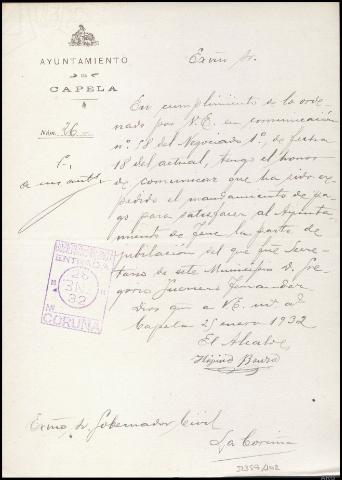 AYUNTAMIENTO
DE
CAPELA
Núm. 26
Exmo Sr.
En cumplimiento de lo orde-
nado por V.E. en comunicación
nº 78 del Negociado 1º, de fecha
18 del actual, tengo el honor
de comunicar que ha sido ex-
pedido el mandamiento de pa-
go para satisfacer al Ayunta-
miento de Jove la parte de
jubilación del que fué Secre-
tario de este Municipio D. Gre-
gorio Fernandez
Dios que a V.E. ms as
Capela 25 enero 1932
El Alcalde,
ENTRADA
26
ENE
32
CORUÑA
Exmo Sr. Gobernador Civil
La Coruña